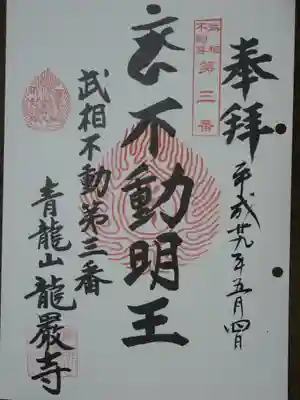 奉拝
平成廿九年五月四日
武相
不動尊
第三番
衣不動明王
武相不動第三番
青龍山龍巖寺